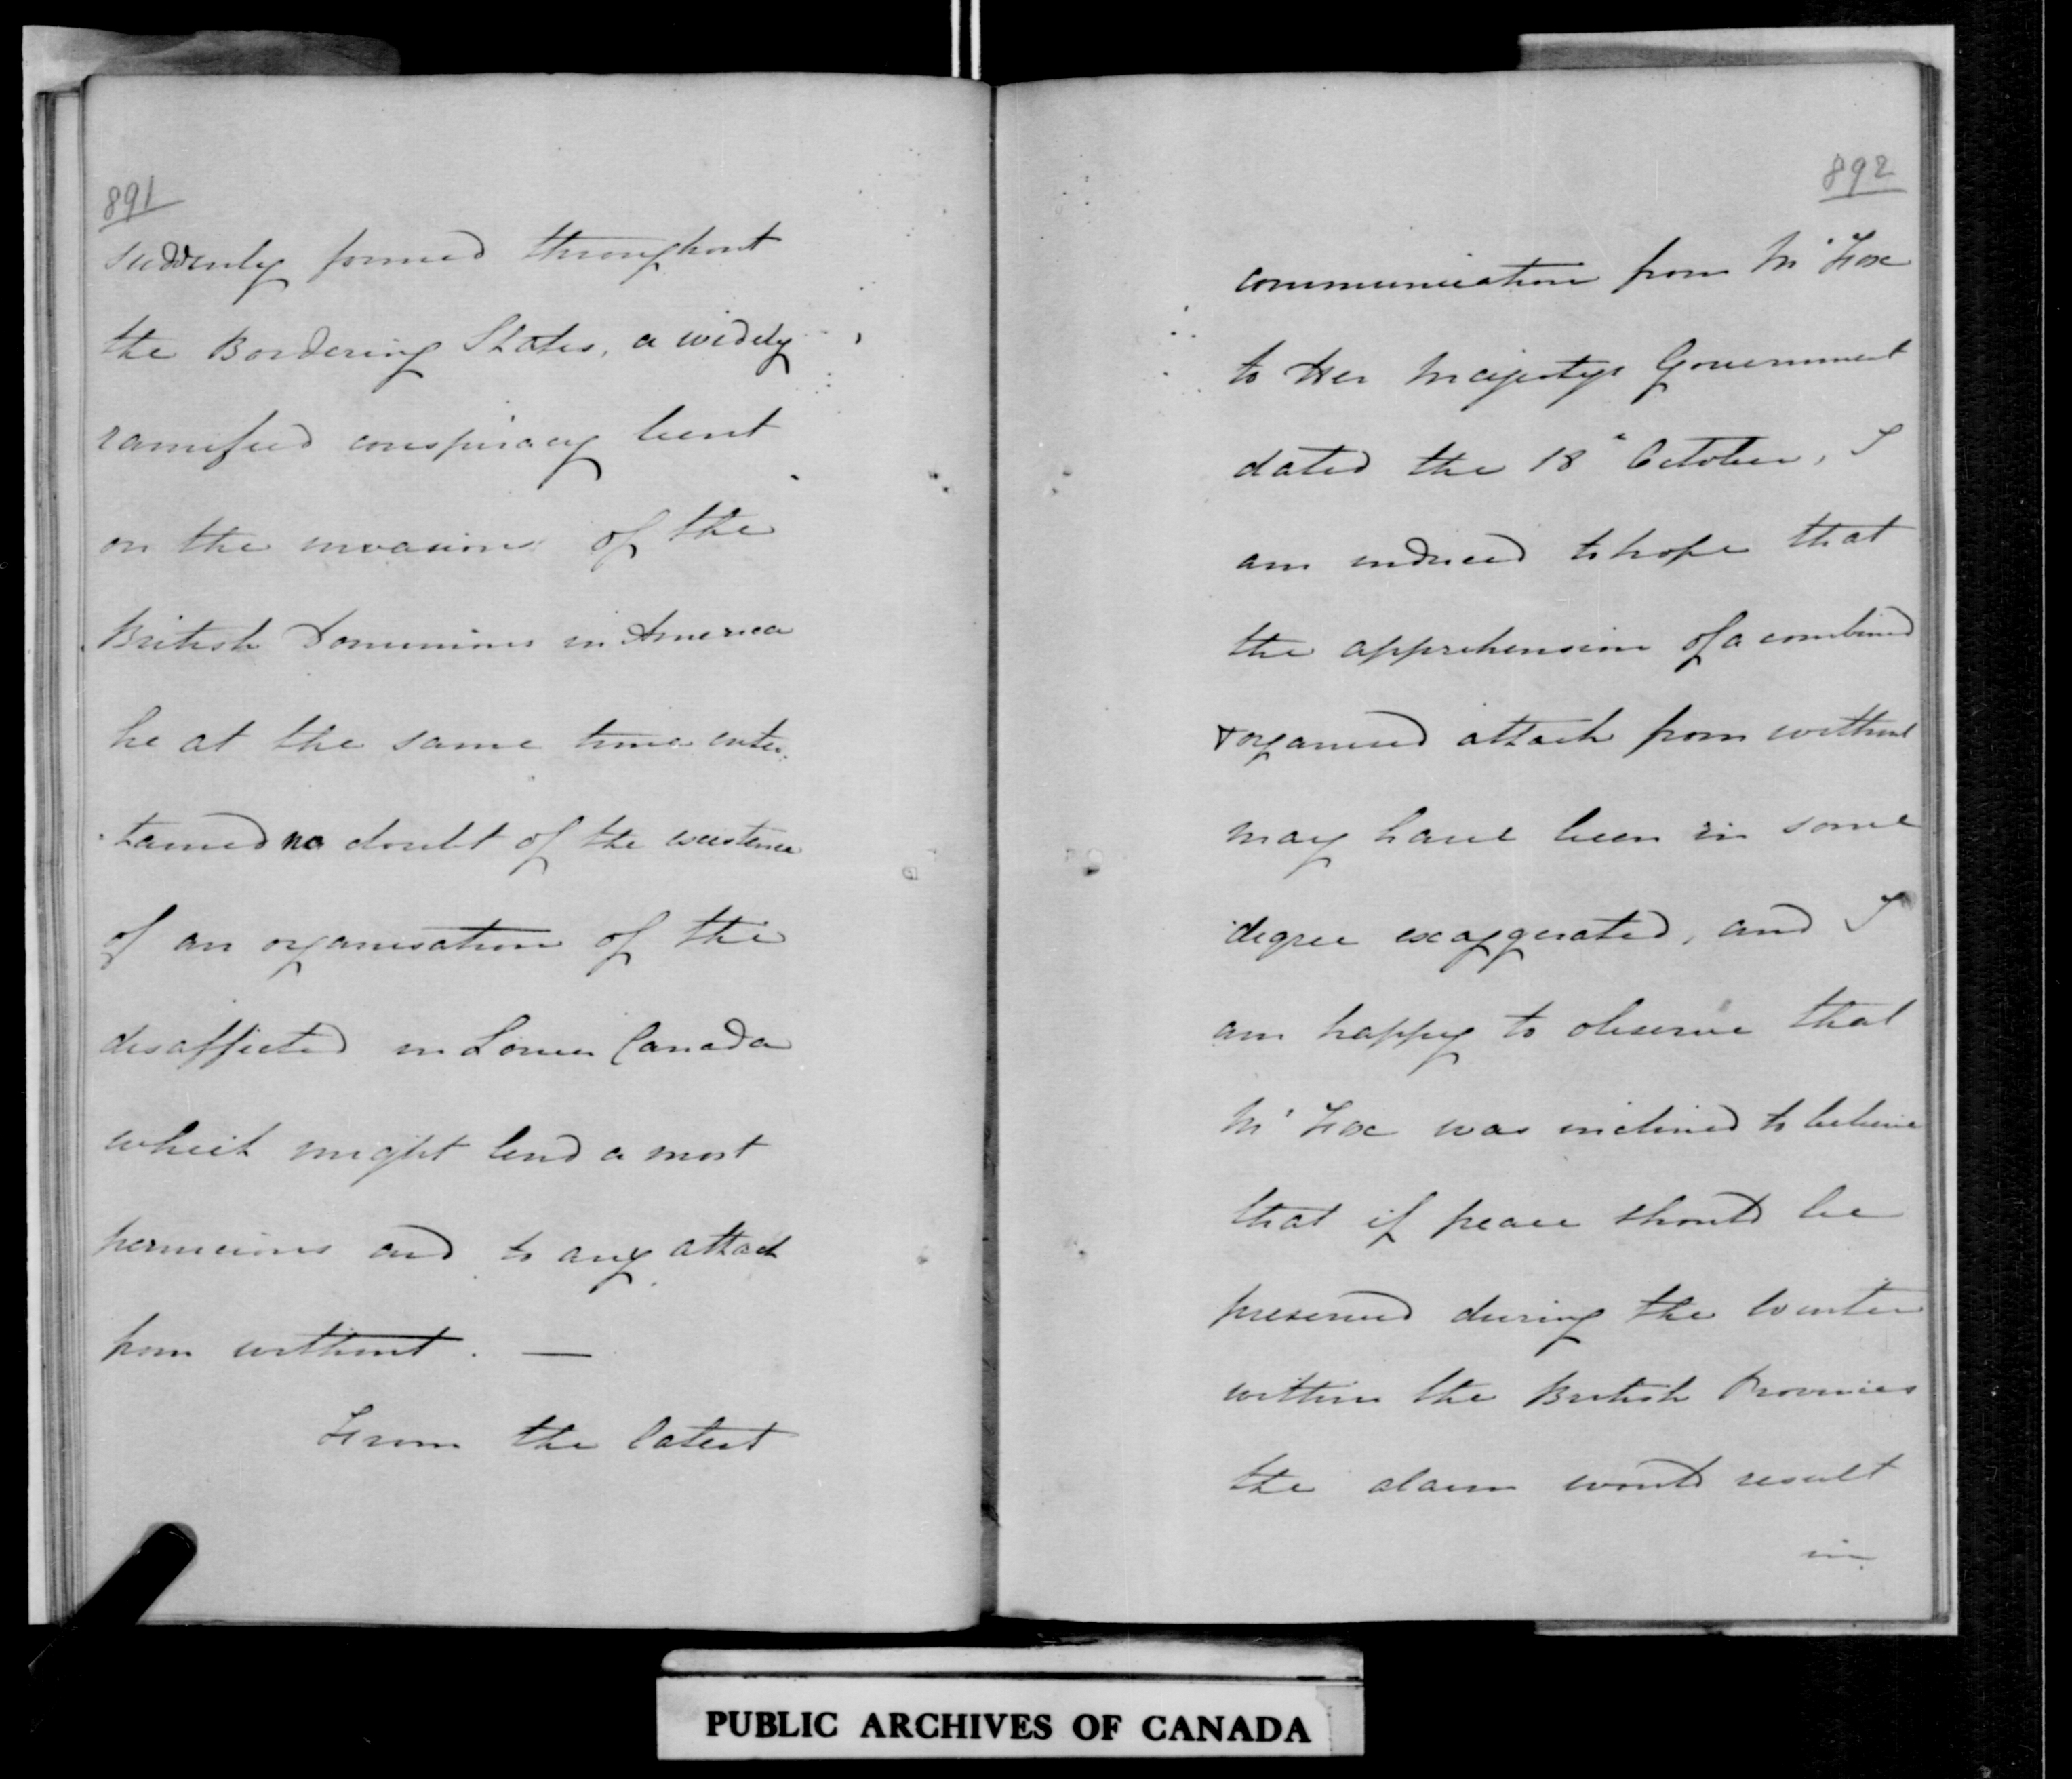 891
suddenly formed throughout
the Bordering States, a widely
ramified conspiracy bent
on the invasion of the
British Dominions in America
he at the same time enter:
:tained no doubt of the existence
of an organisation of the
disaffected in Lower Canada
which might lend a most
pernicious aid to any attack
from without. —
From the latest
892
communication from Mr Fox
to Her Majestys Government
dated the 18th October, I
am induced to hope that
the apprehension of a combined
& organised attack from without
may have been in some
degree exaggerated, and I
am happy to observe that
Mr Fox was inclined to believe
that if peace should be
preserved during the Winter
within the British Provinces
the alarm would result
in
PUBLIC ARCHIVES OF CANADA